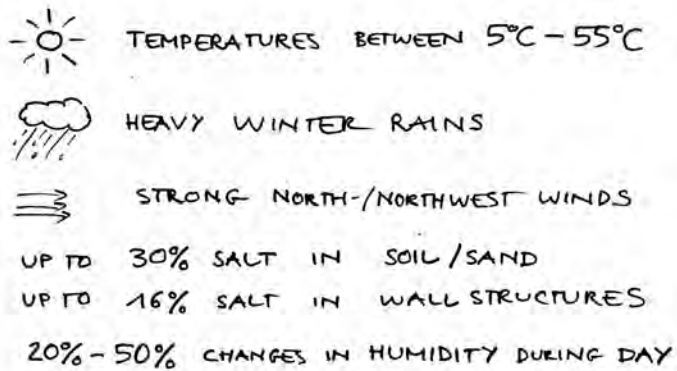 TEMPERATURES BETWEEN 5°C – 55°C
HEAVY WINTER RAINS
STRONG NORTH-/NORTHWEST WINDS
UP TO 30% SALT IN SOIL/SAND
UP TO 16% SALT IN WALL STRUCTURES
20% – 50% CHANGES IN HUMIDITY DURING DAY